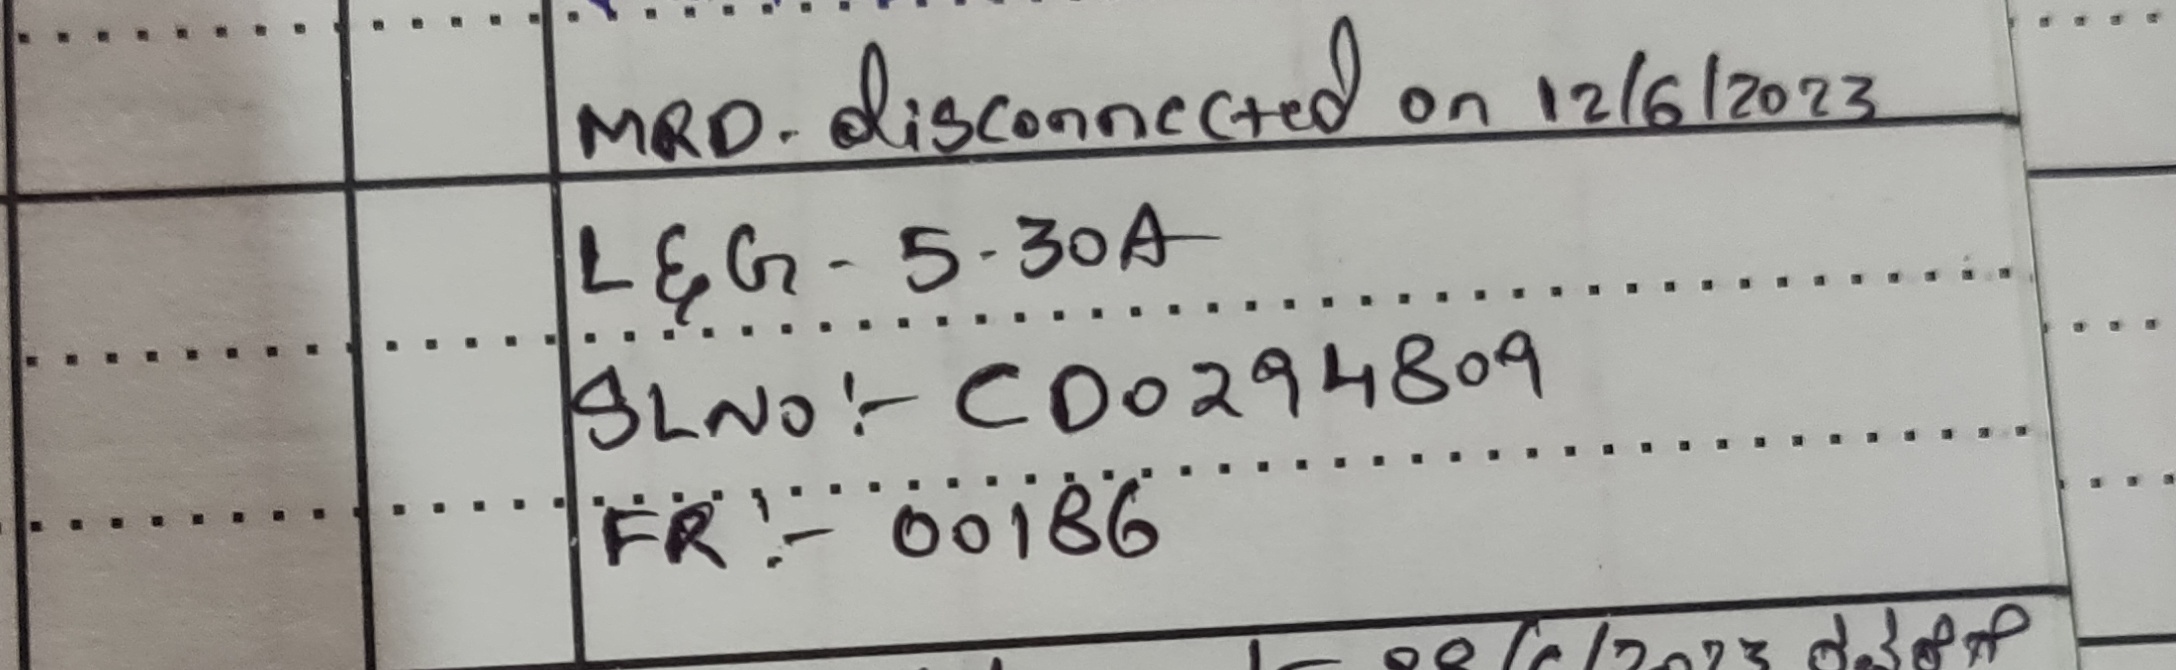 MRD. disconnected on 12/6/2023
L&G - 5-30A
SLNO:- CD0294809
FR:- 00186